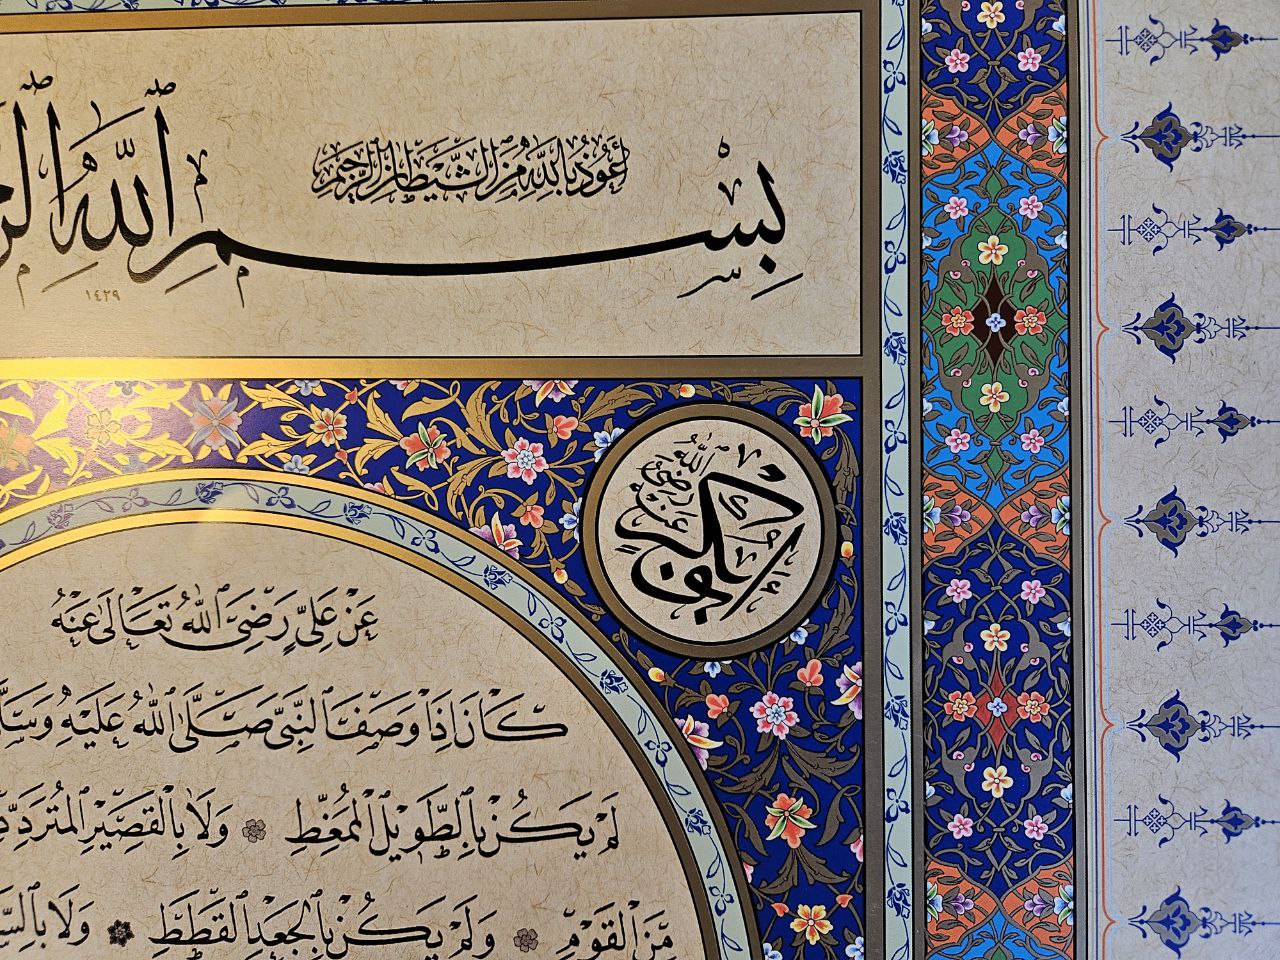 أَعُوذُ بِاللّٰهِ مِنَ الشَّيْطَانِ الرَّجِيمِ
بِسْمِ اللّٰهِ
١٤٢٩
أبو بكر رضي الله عنه
عَنْ عَلِيٍّ رَضِيَ اللّٰهُ تَعَالٰى عَنْهُ
كَانَ إِذَا وَصَفَ النَّبِيَّ صَلَّى اللّٰهُ عَلَيْهِ
لَمْ يَكُنْ بِالطَّوِيلِ الْمُمَغَّطِ وَلَا بِالْقَصِيرِ الْمُتَرَدِّدِ
مِنَ الْقَوْمِ وَلَمْ يَكُنْ بِالْجَعْدِ الْقَطَطِ وَلَا